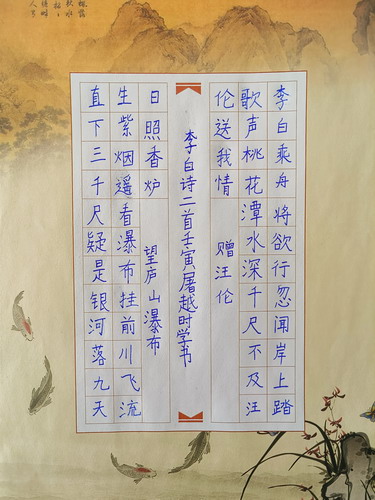 李白乘舟将欲行忽闻岸上踏
歌声桃花潭水深千尺不及汪
伦送我情 赠汪伦
李白诗二首壬寅屠越时学书
日照香炉 望庐山瀑布
生紫烟遥看瀑布挂前川飞流
直下三千尺疑是银河落九天